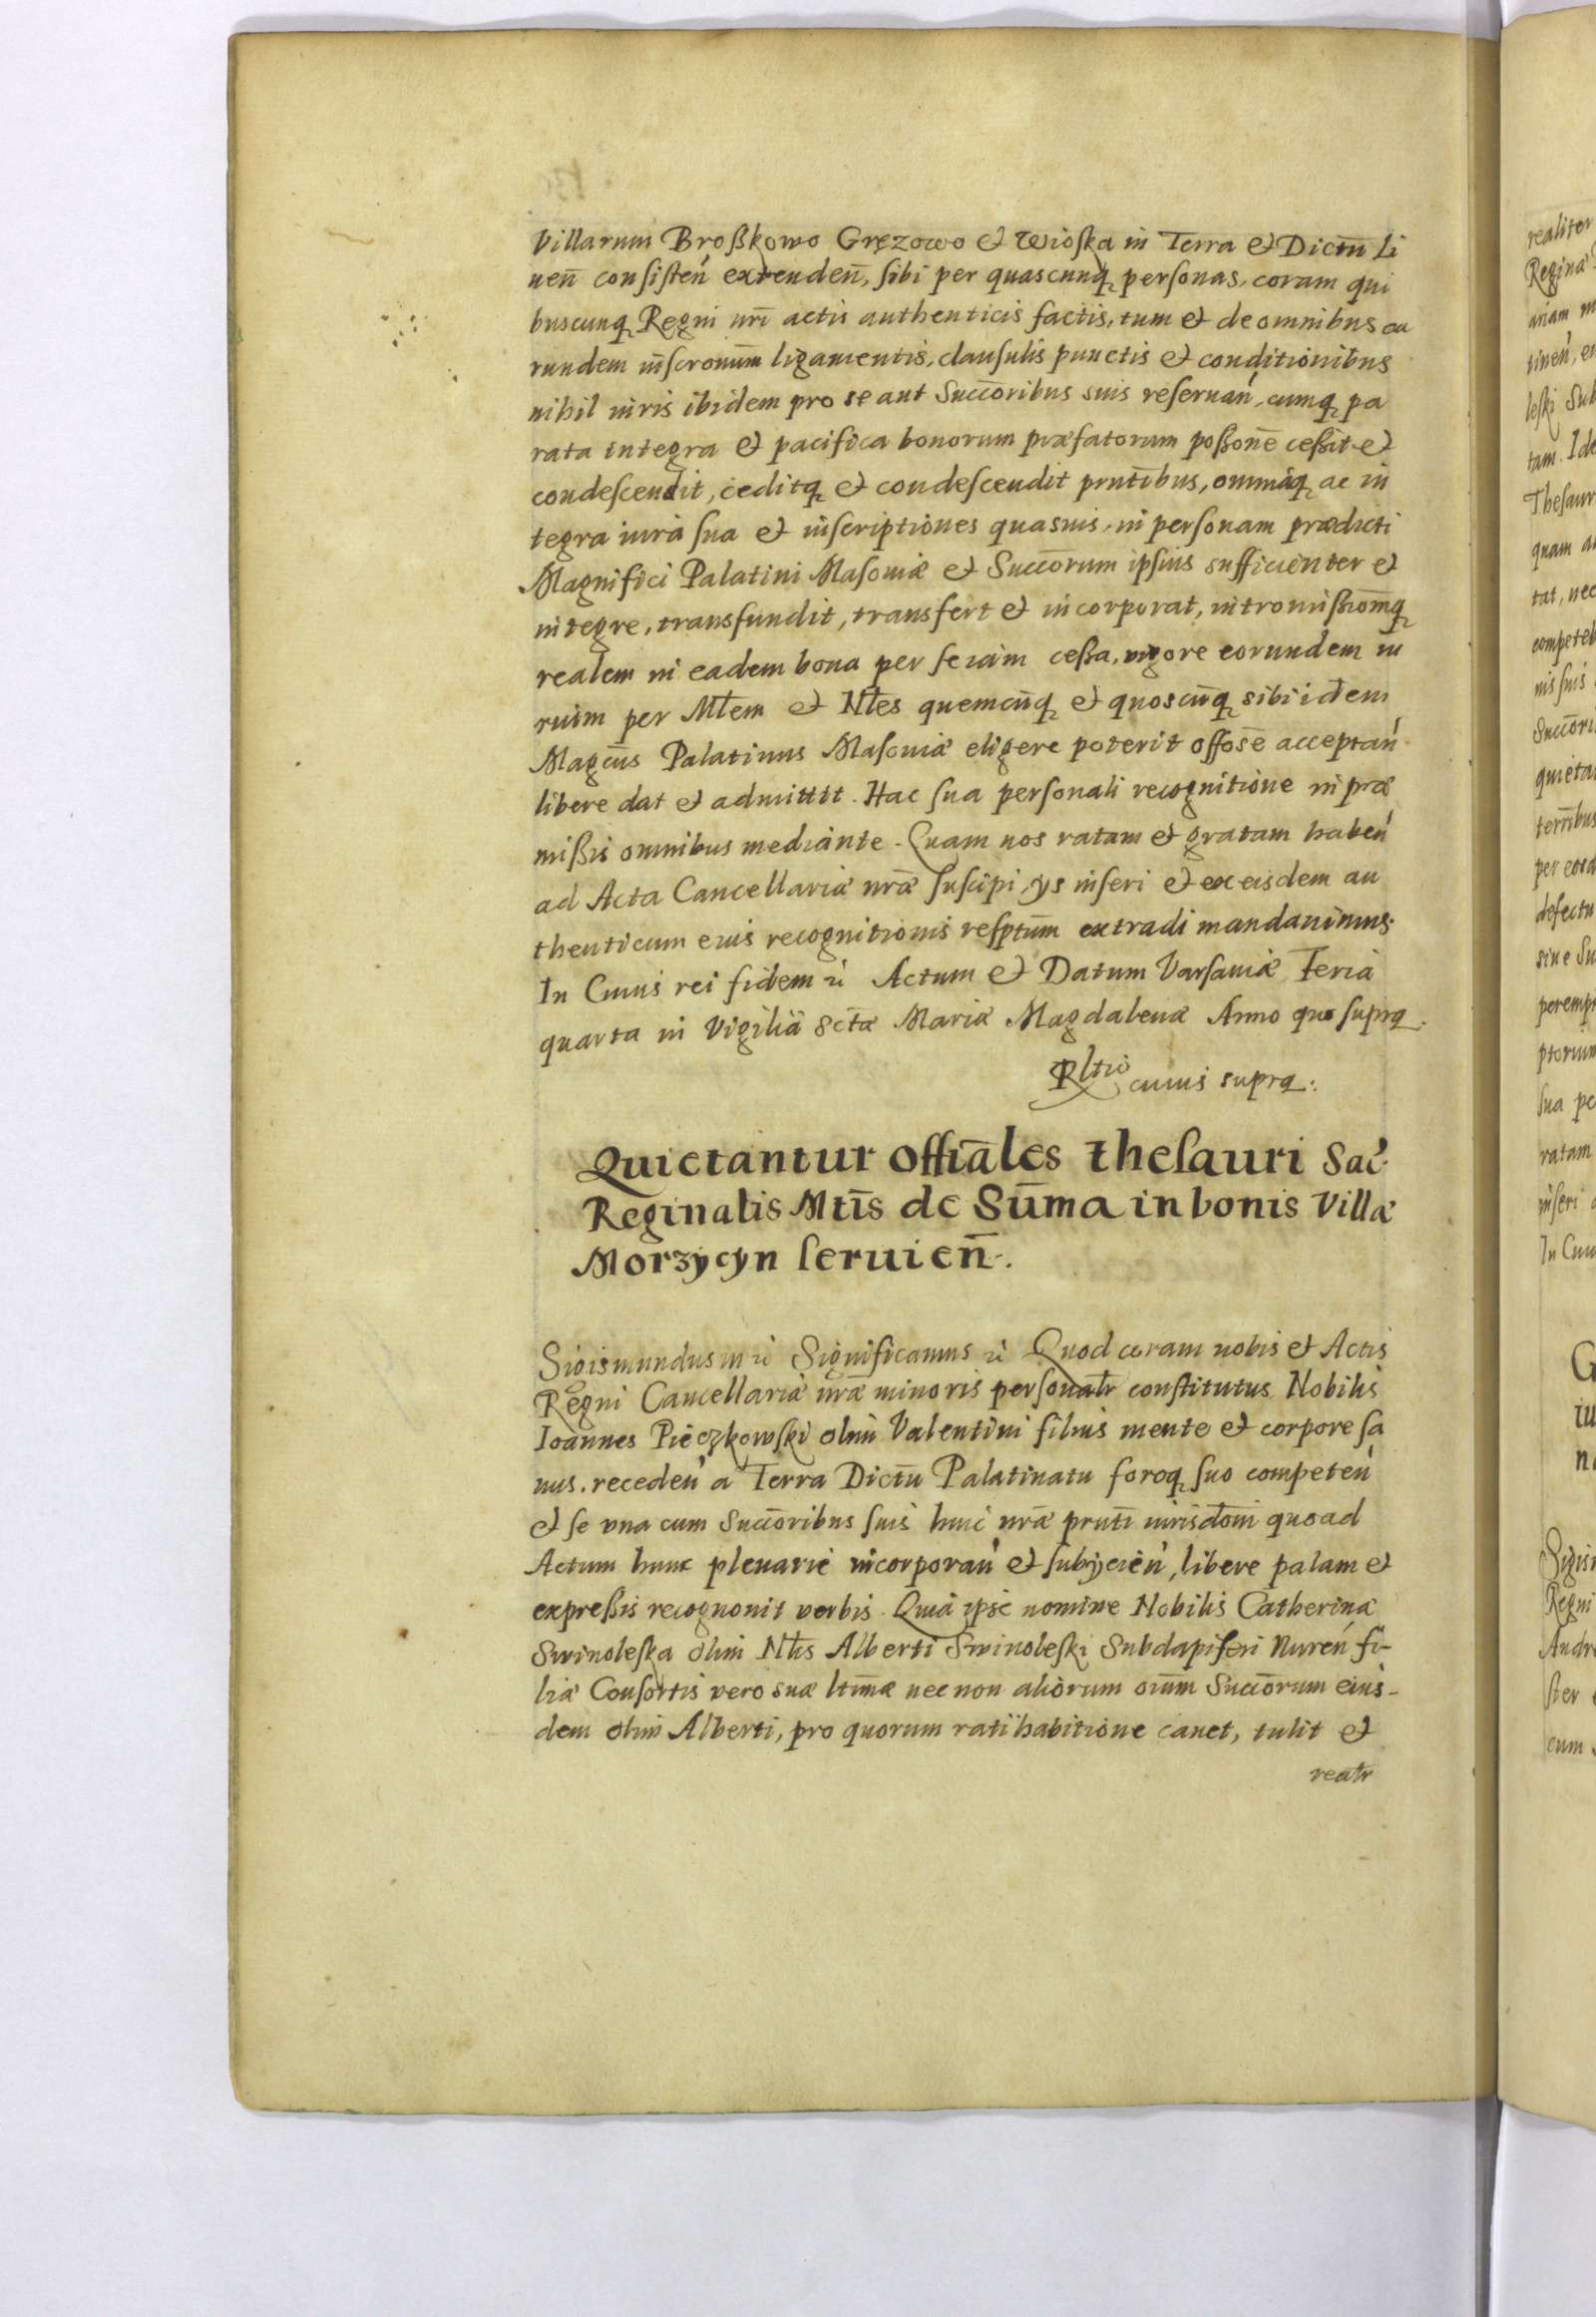 Villarum Broßkowo Gręzowo et Wioſka in Terra et Dictū Li
uen̄ conſiſteń extenden̄, ſibi per quascunq personas, coram qui
buscunq Regni nrī actis authenticis factis, tum et de omnibus ea
rundem inscronum̄ ligamentis, clauſulis punctis et conditionibus
nihil iuris ibidem pro se aut Succōribus suis reſeruań, cumq pa
rata integra et pacifica bonorum præfatorum poßonē ceßit et
condeſcendit, ceditq et condeſcendit prntībus, omniaq ac in
tegra iura ſua et inſcriptiones quasuis, in perſonam prædicti
Magnifici Palatini Maſouiæ et Succōrum ipſius sufficienter et
integre, transfundit, transfert et incorporat, intromißiōmq
realem in eadem bona per ſe iam ceßa, vigore eorundem iu
rium per Mtēm et Ntēs quemcūq et quoscūq sibi idem
Magcūs Palatinus Maſouiæ eligere poterit offosē acceptań
libere dat et admittit. Hac ſua perſonali recognitione in præ
mißis omnibus mediante. Quam nos ratam et gratam habeń
ad Acta Cancellariæ nrǣ ſuſcipi, ijs inſeri et ex eisdem au
thenticum eius recognitionis reſptūm extradi mandauimus.
In Cuius rei fidem ꝛ̀ Actum et Datum Varſauiæ Feria
quarta in Vigilia Sctǣ Mariæ Magdalenæ Anno quo supra.
Rltio cuius supra.
Quietantur offiāles theſauri Sac̀
Reginalis Mtīs de Sūma in bonis Villæ
Morzÿcyn ſeruien̄.
Sigismundus III ꝛ̀ Significamus ꝛ̀ Quod coram nobis et Actis
Regni Cancellariæ nrǣ minoris perſonatr̄ conſtitutus Nobilis
Ioannes Pieczkowſki olim Valentini filius mente et corpore ſa
nus. recedeń a Terra Dictū Palatinatu foroq ſuo competeń
et ſe vna cum Succōribus ſuis huic nrǣ prntī iurisdōni quoad
Actum hunc plenarie incorporań et ſubijcień, libere palam et
expreßis recognouit verbis. Quia ipse nomine Nobilis Catherinæ
Swinoleſka olim Ntīs Alberti Swinoleſki Subdapiferi Nureń fi-
liæ Conſortis vero suæ ltīmæ nec non aliorum oiūm Succōrum eius-
dem olim Alberti, pro quorum ratihabitione cauet, tulit et
realr̄